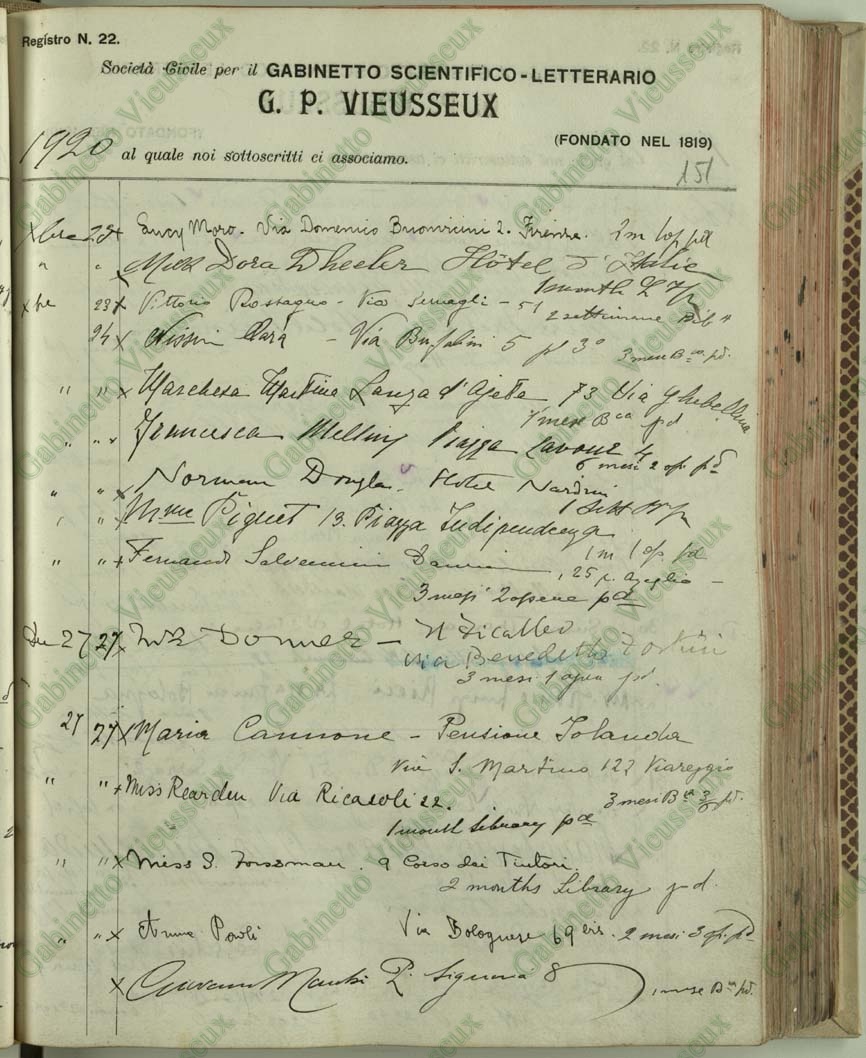 Registro N. 22.
Società Civile per il GABINETTO SCIENTIFICO-LETTERARIO
G. P. VIEUSSEUX
(FONDATO NEL 1819)
1920 al quale noi sottoscritti ci associamo.
151
Xbre 23 x Lucy Moro - Via Domenico Buonvicini 2. Firenze. 2 m 1 op pd
" " x Miss Dora Wheeler Hôtel d'Italie
1 month
xbre 23 x Vittorio Rostagno - Via Serragli - 51
2 settimane
24 x Nissim Clara - Via Bufalini 5 pº 3º
3 mesi Bca pd.
" " x Marchesa Martino Lanza d'Ajeta 73 Via Ghibellina
1 mese Bca pd
" " x Francesca Melling Piazza Cavour 4
6 mesi 2 op. pd
" " x Norman Douglas - Hotel Nardini
" " x Mme Piguet 13. Piazza Indipendenza
1 m 1 op. pd
" " x Fernando Salvemini, 25 p. Azeglio -
3 mesi 2 opere pd
27 27 x Donner -
Via Benedetto Fortini
3 mesi 1 opera pd.
27 27 x Maria Cannone - Pensione Iolanda
Via S. Martino 122 Viareggio
3 mesi Bca pd.
" " x Miss Rearden Via Ricasoli 22.
1 month Library pd
" " x Miss S. Forssman. 9 Corso dei Tintori.
2 months Library pd.
" " x Anna Paoli Via Bolognese 69 bis. 2 mesi 3 op. pd
x Giovanni P. Signoria 8
1 mese Bca pd.
Gabinetto Vieusseux